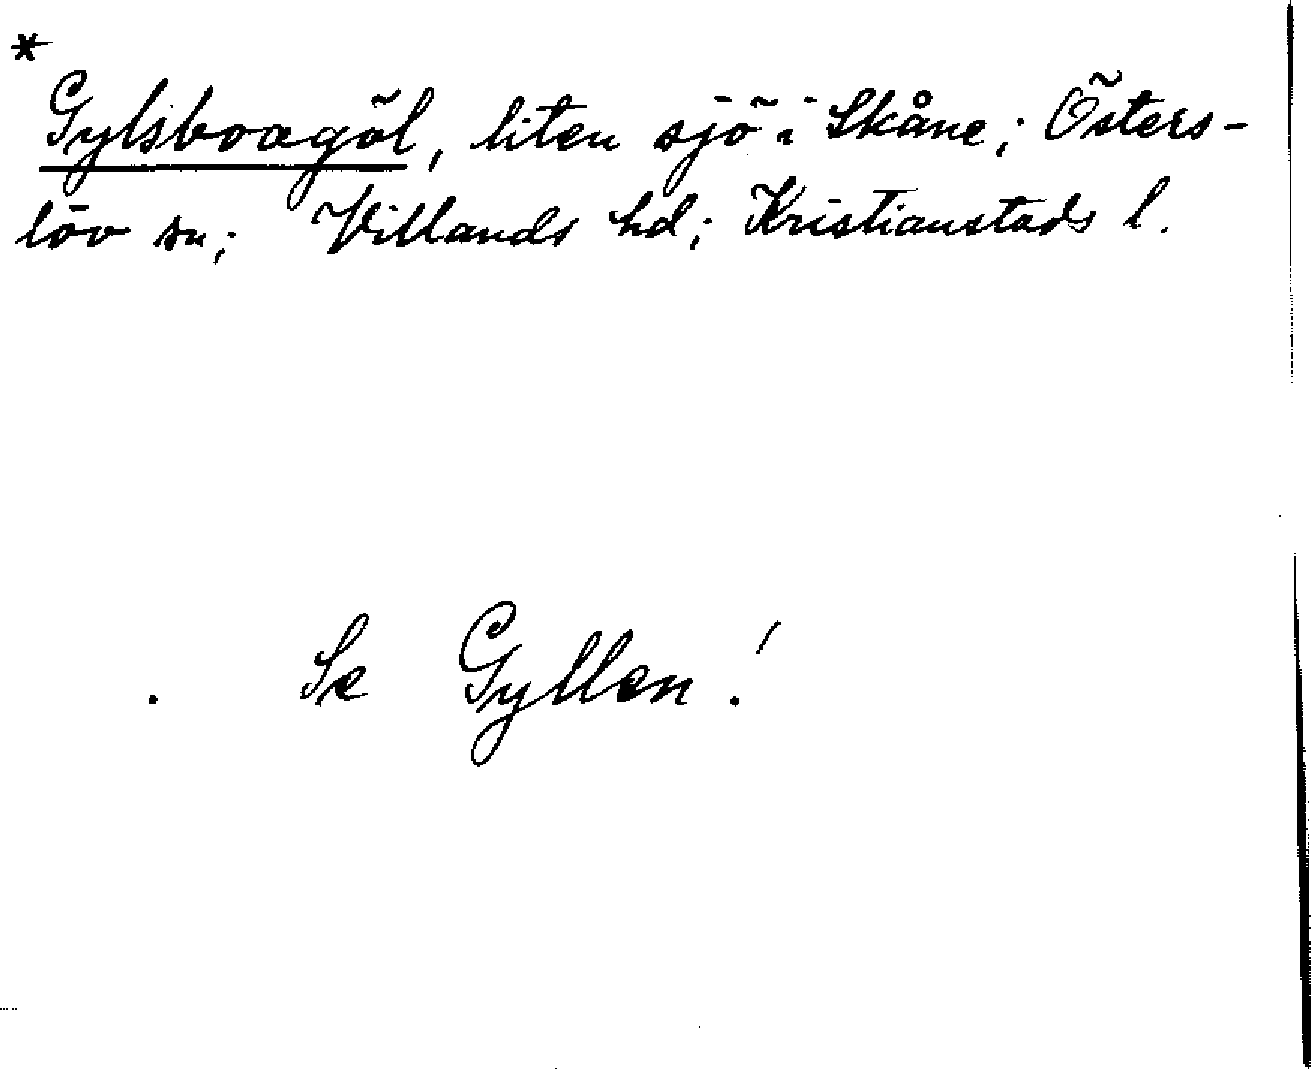 *
Gylsboagöl, liten sjö i Skåne; Östers-
löv sn; Villands hd; Kristianstads l.
Se Gyllen!